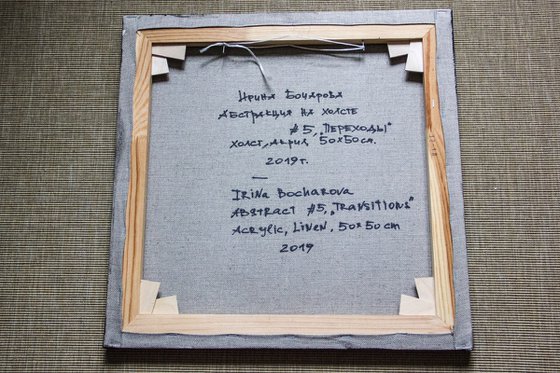 Ирина Бочарова
Абстракция на холсте
#5, „Переходы"
холст, акрил, 50x50см.
2019г.
—
Irina Bocharova
Abstract #5, „Transitions"
Acrylic, Linen, 50x50 cm
2019